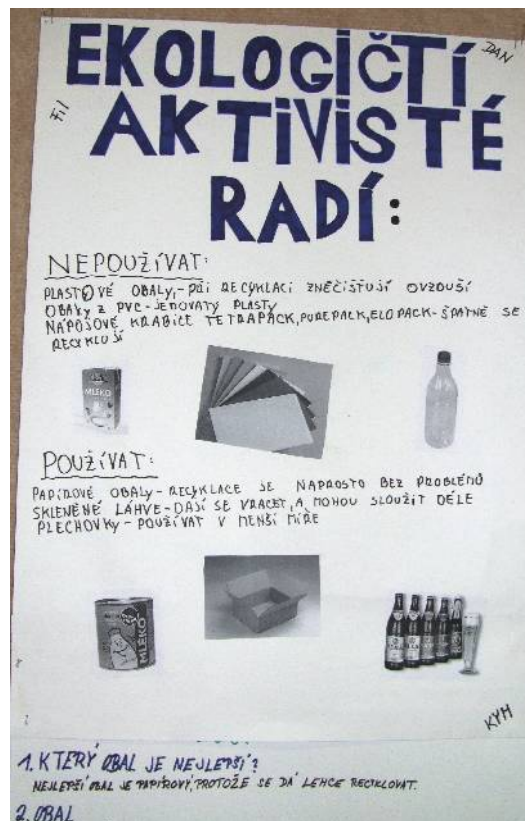 EKOLOGIČTÍ
DAN
Fil
AKTIVISTÉ
RADÍ:
NEPOUŽÍVAT:
PLASTOVÉ OBALY,-PŘI RECYKLACI ZNEČIŠŤUJÍ OVZDUŠÍ
OBALY Z PVC-JEDOVATÝ PLASTY
NÁPOJOVÉ KRABICE TETRAPACK,PUREPACK,ELOPACK-ŠPATNĚ SE
RECYKLUJÍ
MLÉKO
POUŽÍVAT:
PAPÍROVÉ OBALY-RECYKLACE JE NAPROSTO BEZ PROBLÉMŮ
SKLENĚNÉ LÁHVE-DAJÍ SE VRACET,A MOHOU SLOUŽIT DÉLE
PLECHOVKY-POUŽÍVAT V MENŠÍ MÍŘE
MLÉKO
KYM
1. KTERÝ OBAL JE NEJLEPŠÍ?
NEJLEPŠÍ OBAL JE PAPÍROVÝ,PROTOŽE SE DÁ LEHCE RECIKLOVAT.
2. OBAL